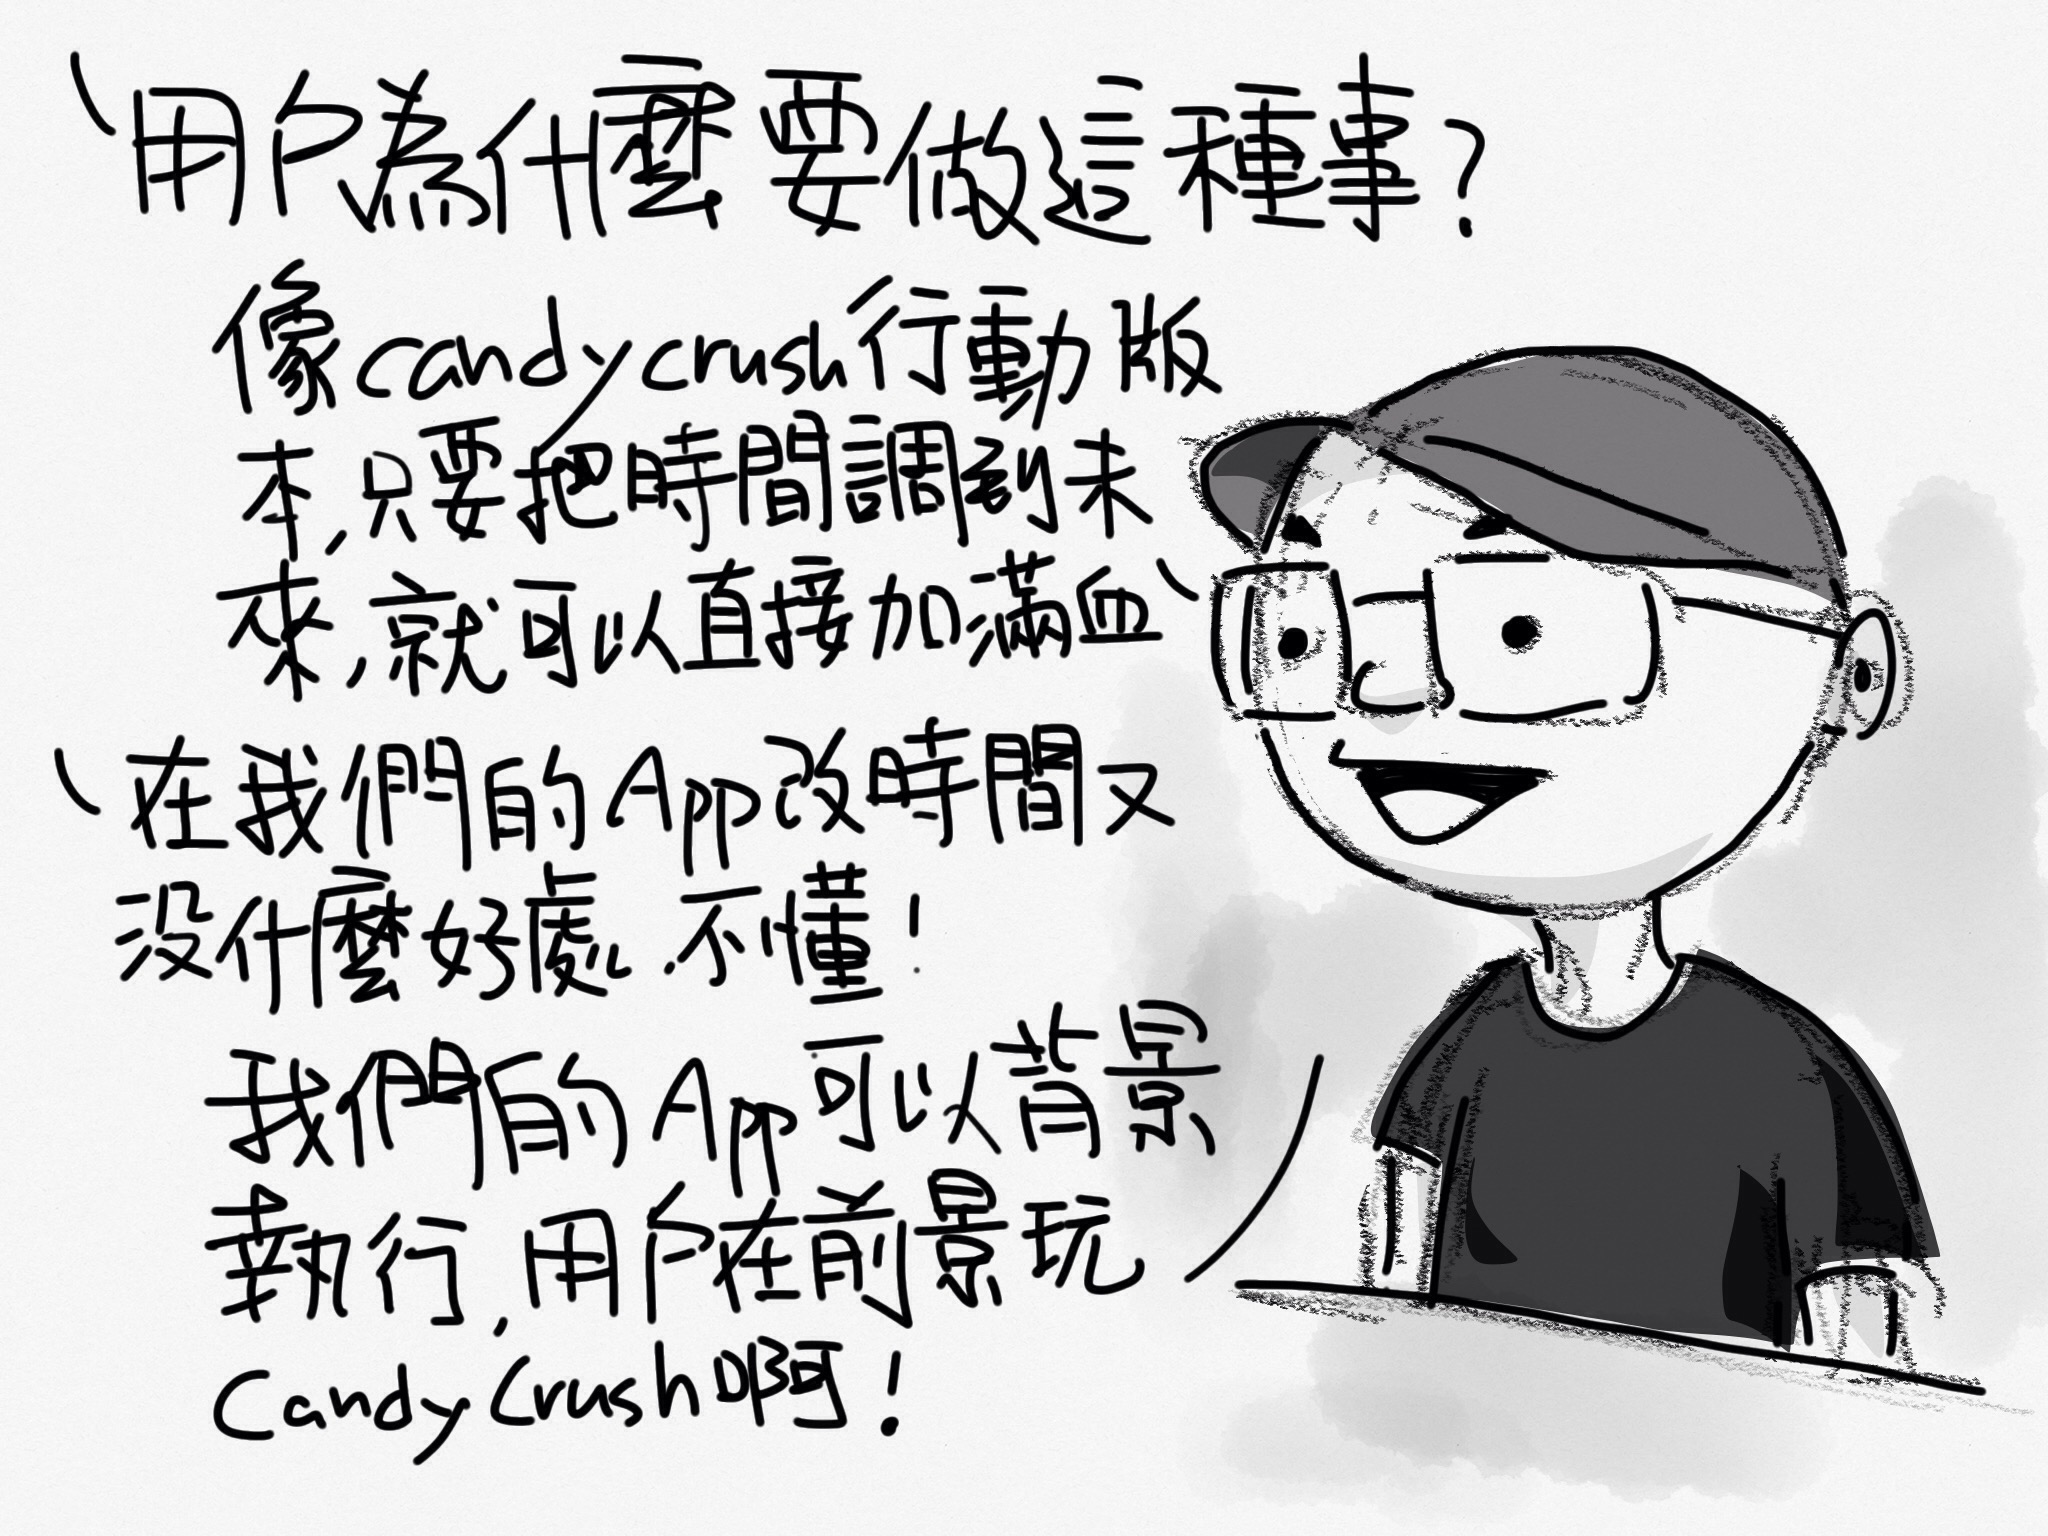 用戶為什麼要做這種事?
像candycrush行動版
本,只要把時間調到未
來,就可以直接加滿血
在我們的App改時間又
沒什麼好處,不懂!
我們的App可以背景
執行,用戶在前景玩
Candy Crush啊!